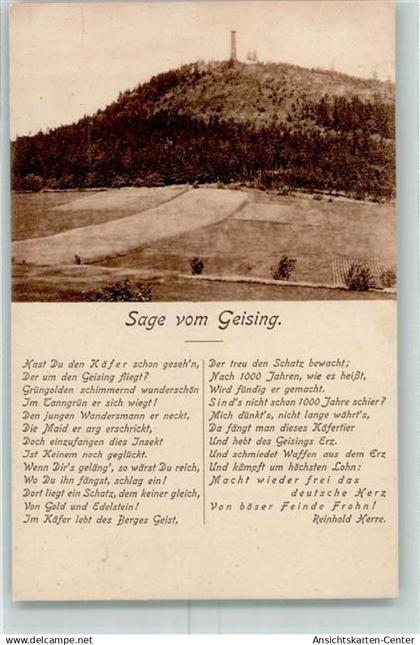 Sage vom Geising.
Hast Du den Käfer schon geseh'n,
Der um den Geising fliegt?
Grüngolden schimmernd wunderschön
Im Tanngrün er sich wiegt!
Den jungen Wandersmann er neckt,
Die Maid er arg erschrickt,
Doch einzufangen dies Insekt
Ist Keinem noch geglückt.
Wenn Dir's geläng', so wärst Du reich,
Wo Du ihn fängst, schlag ein!
Dort liegt ein Schatz, dem keiner gleich,
Von Gold und Edelstein!
Im Käfer lebt des Berges Geist,
Der treu den Schatz bewacht;
Nach 1000 Jahren, wie es heißt,
Wird fündig er gemacht.
Sind's nicht schon 1000 Jahre schier?
Mich dünkt's, nicht lange währt's,
Da fängt man dieses Käfertier
Und hebt des Geisings Erz.
Und schmiedet Waffen aus dem Erz
Und kämpft um höchsten Lohn:
Macht wieder frei das
deutsche Herz
Von böser Feinde Frohn!
Reinhold Herre.
oldthing.de
Ansichtskarten-Center